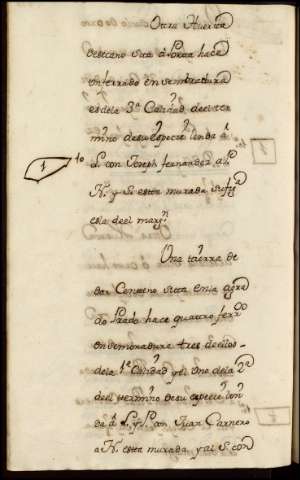 Otra Huerta
de secano sita â Poza hace
un ferrado en sembradura
es dela 3ª Calidad del ter
mino de su especie linda â
L. con Joseph fernandez a P.
N. y S. esta murada su fig.ª
es la del marg.n
1
Una tierra de
dar Centeno sita en la agra
do Prado hace quatro ferr.os
en sembradura tres de ellos
dela 1ª Calidad y el uno dela 2ª
del termino de su especie lin
da â L. y P. con Juan Carnero
a N. esta murada y al S. con